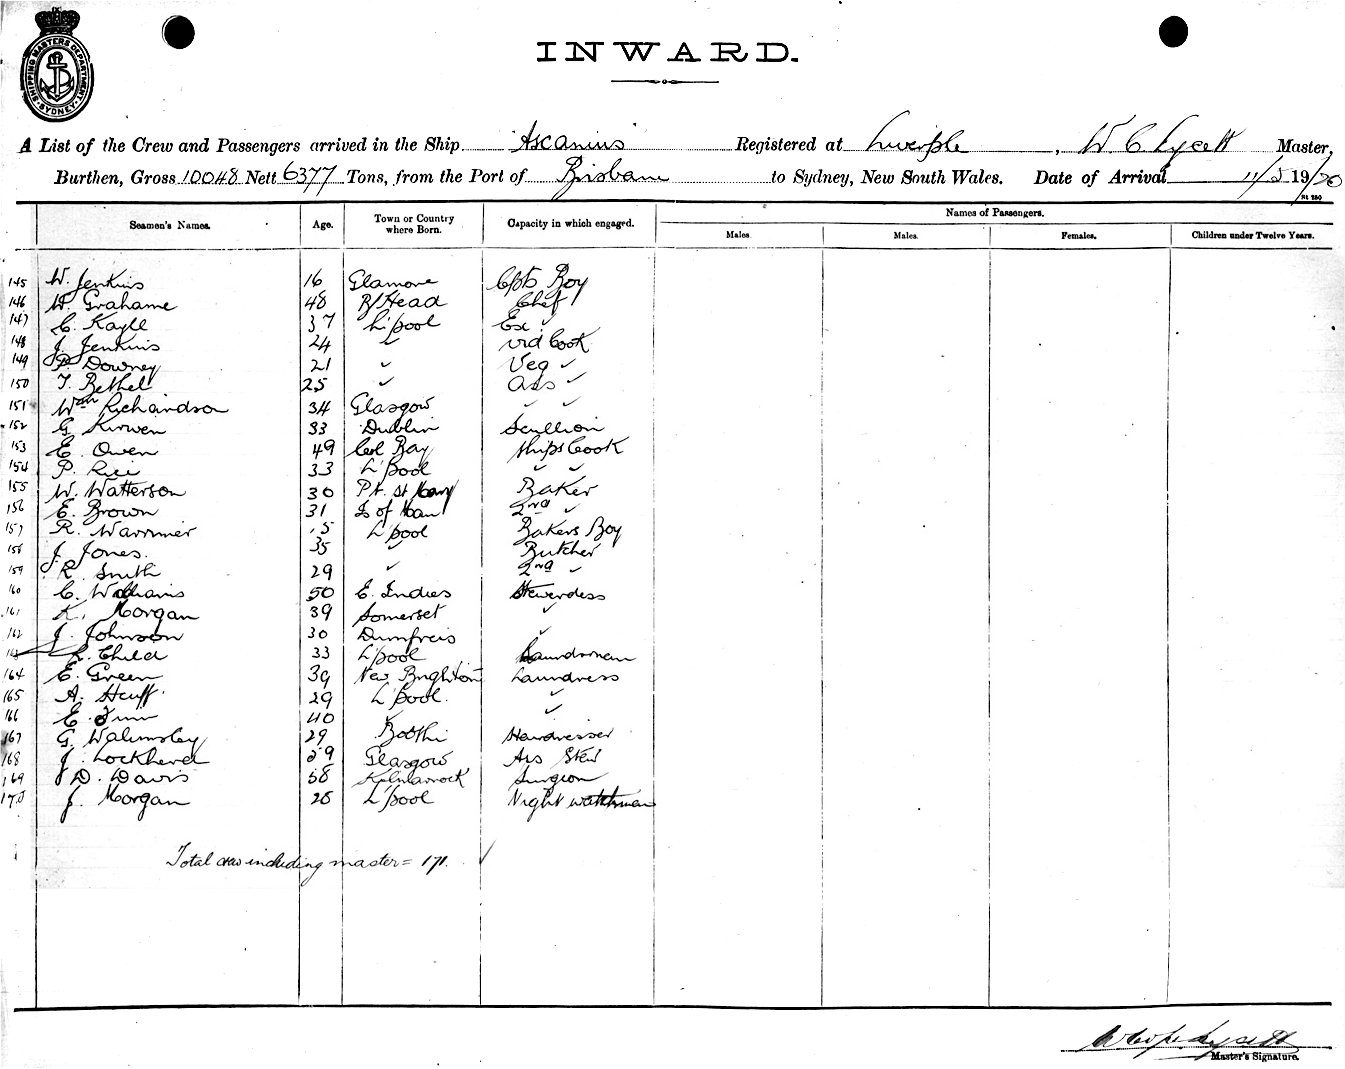 SHIPPING MASTERS DEPARTMENT SYDNEY
INWARD.
A List of the Crew and Passengers arrived in the Ship "Ascanius" Registered at Liverpool, W. C. Lycett Master,
Burthen, Gross 10048 Nett 6377 Tons, from the Port of Brisbane to Sydney, New South Wales. Date of Arrival 11/5 19/20
Names of Passengers.
Seamen's Names. Age. Town or Country where Born. Capacity in which engaged. Males. Males. Females. Children under Twelve Years.
145 W. Jenkins 16 Boy
146 W. Grahame 48 B/Head Chef
147 C. Kayll 37 L'pool Ex ✓
148 J. Jenkins 24 ✓ Cook
149 P. Downey 21 ✓ Veg ✓
150 T. Bethel 25 ✓ Ass ✓
151 Wm Richardson 34 Glasgow ✓ ✓
152 G. Kirwen 33 Dublin Scullion
153 E. Owen 49 Col Bay Ships Cook
154 P. Rice 33 L'pool ✓ ✓
155 W. Watterson 30 Pt. St Mary Baker
156 E. Brown 31 Is of Man 2nd ✓
157 R. Warriner 15 L'pool Bakers Boy
158 J. Jones. 35 ✓ Butcher
159 R. Smith 29 ✓ 2nd ✓
160 C. Williams 50 E. Indies Stewerdess
161 K. Morgan 39 Somerset ✓
162 J. Johnson 30 Dumfreis ✓
163 R. Child 33 L'pool Laundrman
164 E. Green 39 New Brighton Laundress
165 A. 29 L'pool. ✓
166 E. 40 ✓ ✓
167 G. Walmsley 29 Bootle Hairdresser
168 J. Lockherd 29 Glasgow Ass Stew
169 D. Davis 58 Kilmarnock Surgeon
170 J. Morgan 28 L'pool Night watchman
Total crew including master = 171. ✓
Lycett
Master's Signature.